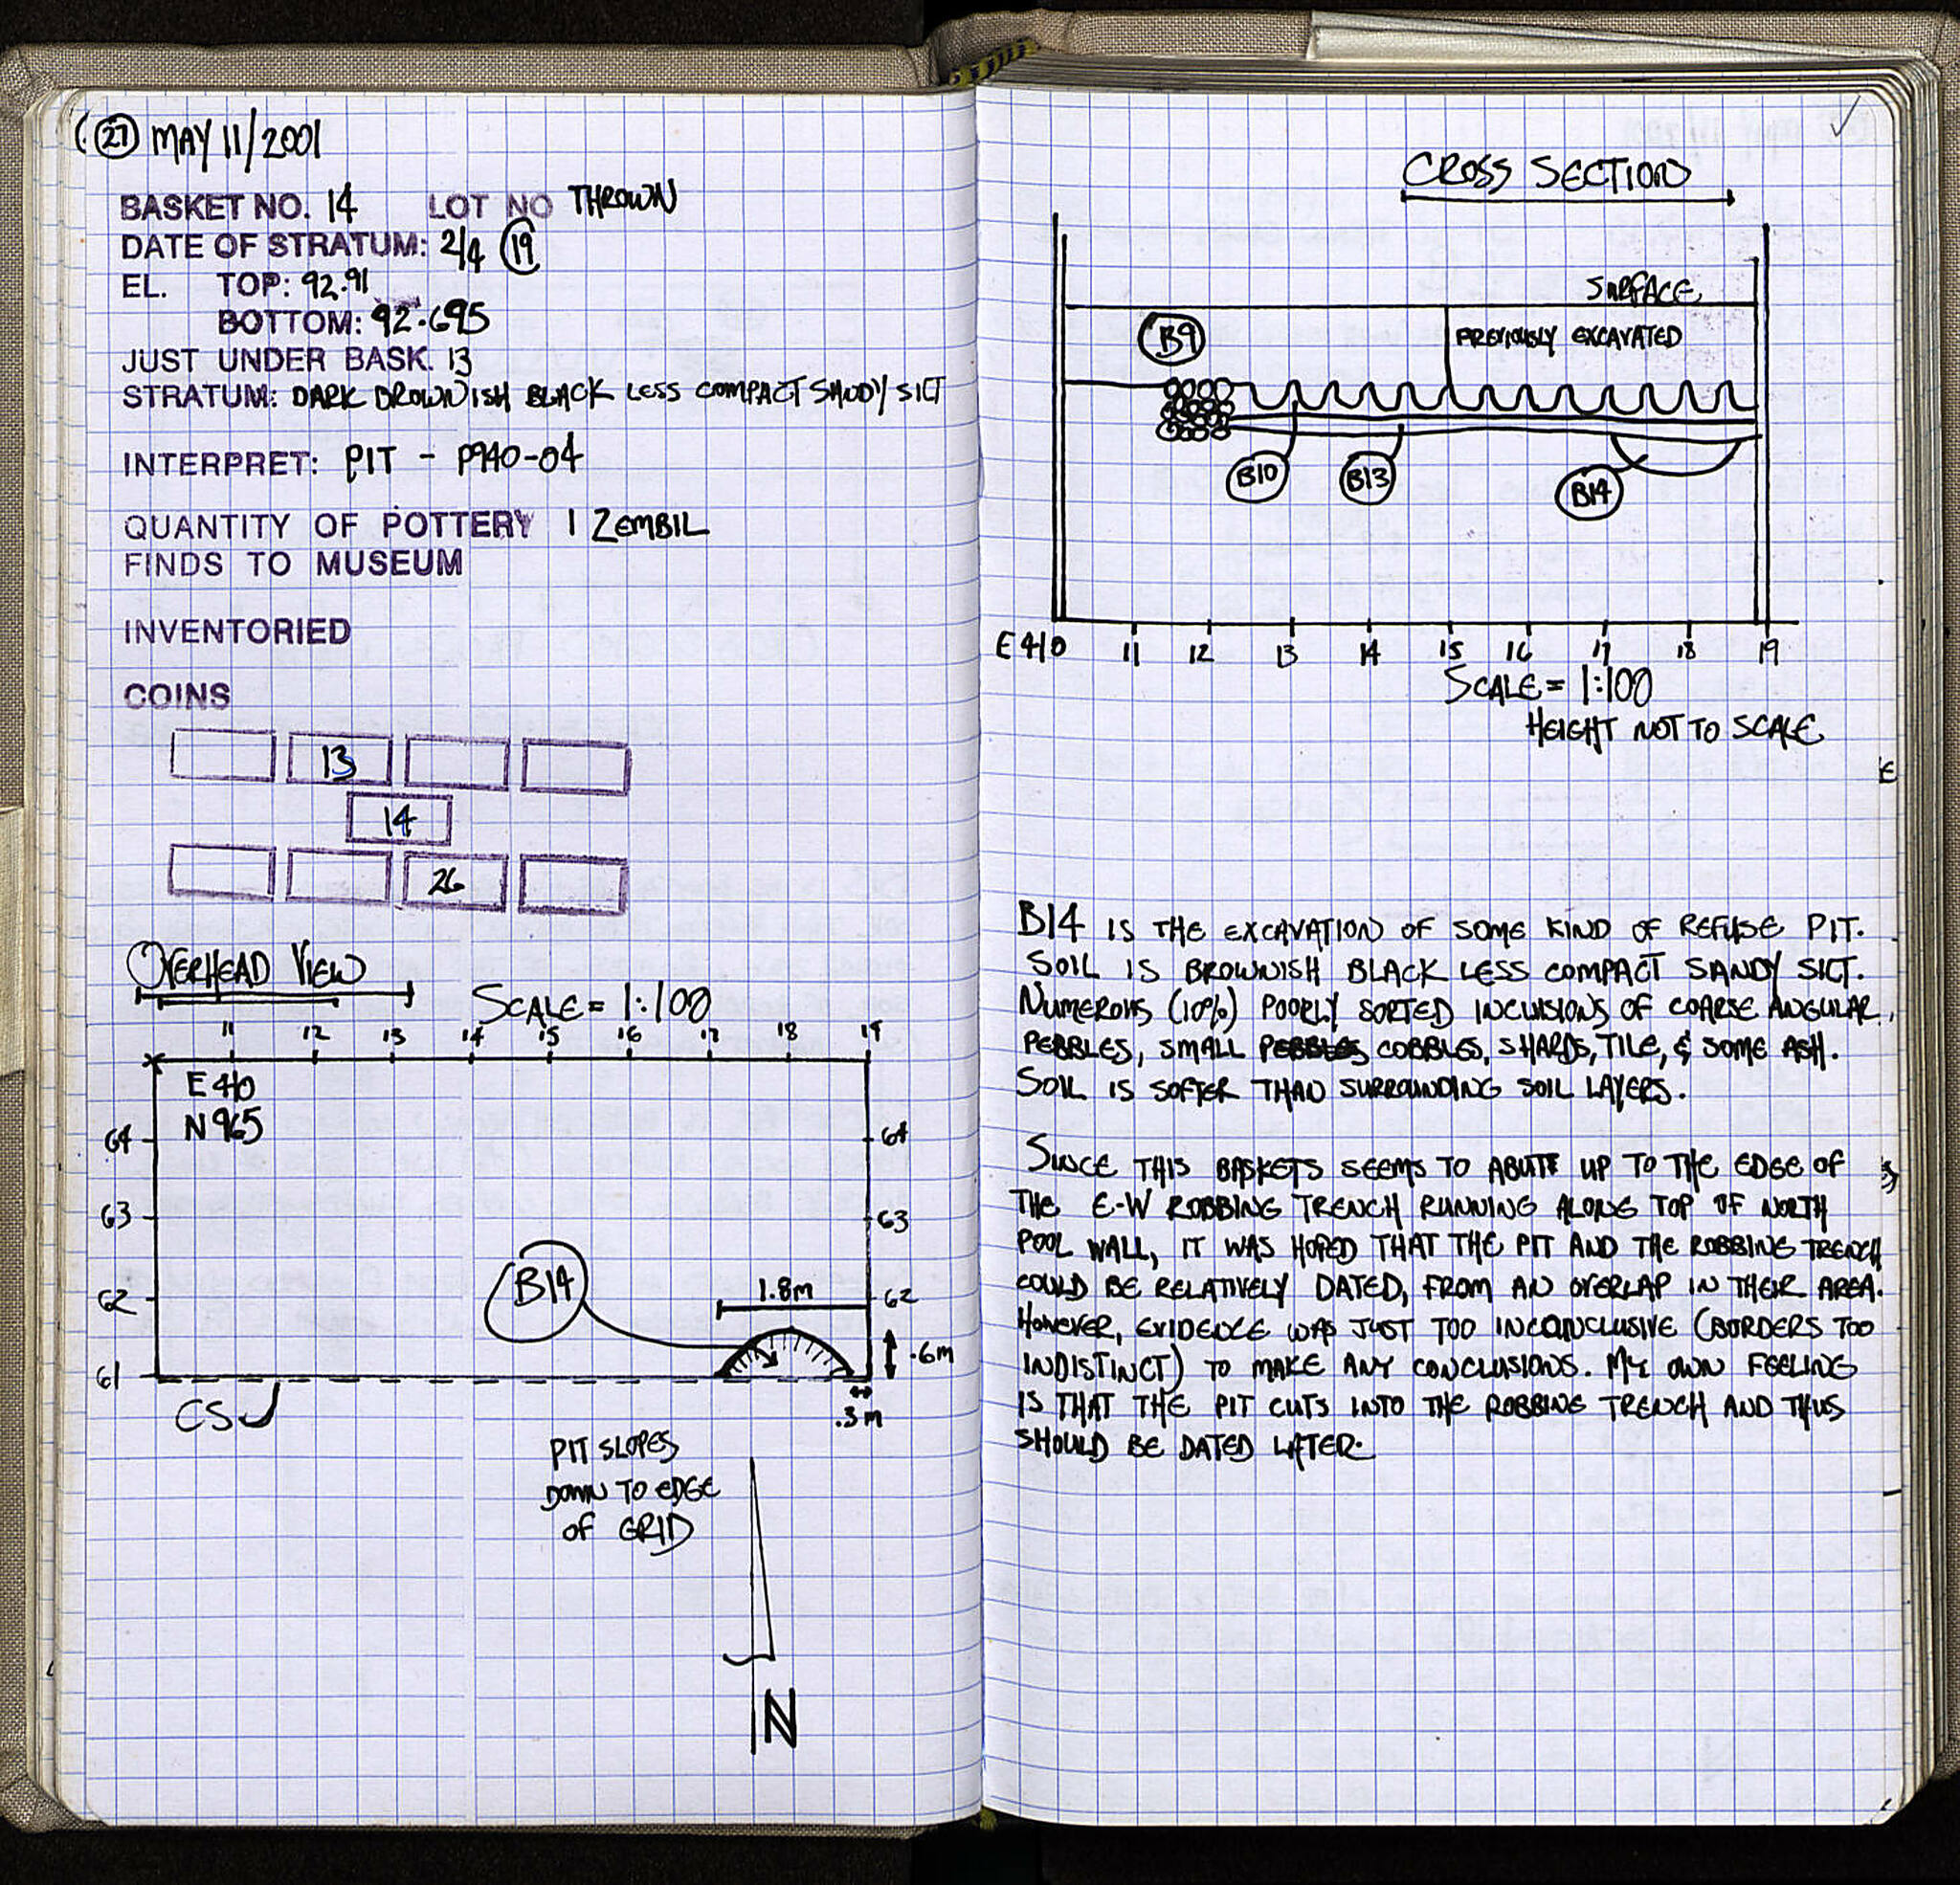 27 MAY 11/2001
BASKET NO. 14 LOT NO THROWN
DATE OF STRATUM: 2/4 19
EL. TOP: 92.91
BOTTOM: 92.695
JUST UNDER BASK. 13
STRATUM: DARK BROWNISH BLACK LESS COMPACT SANDY SILT
INTERPRET: PIT - P940-04
QUANTITY OF POTTERY 1 ZEMBIL
FINDS TO MUSEUM
INVENTORIED
COINS
13
14
26
OVERHEAD VIEW
SCALE = 1:100
11 12 13 14 15 16 17 18 19
E 410
N 965
64 64
63 63
B14
1.8m
62 62
.6m
61
CS
.3m
PIT SLOPES
DOWN TO EDGE
OF GRID
N
CROSS SECTION
SURFACE
B9
PREVIOUSLY EXCAVATED
B10 B13 B14
E 410 11 12 13 14 15 16 17 18 19
SCALE = 1:100
HEIGHT NOT TO SCALE
B14 IS THE EXCAVATION OF SOME KIND OF REFUSE PIT.
SOIL IS BROWNISH BLACK LESS COMPACT SANDY SILT.
NUMEROUS (10%) POORLY SORTED INCLUSIONS OF COARSE ANGULAR
PEBBLES, SMALL PEBBLES COBBLES, SHARDS, TILE, & SOME ASH.
SOIL IS SOFTER THAN SURROUNDING SOIL LAYERS.
SINCE THIS BASKETS SEEMS TO ABUTT UP TO THE EDGE OF
THE E-W ROBBING TRENCH RUNNING ALONG TOP OF NORTH
POOL WALL, IT WAS HOPED THAT THE PIT AND THE ROBBING TRENCH
COULD BE RELATIVELY DATED, FROM AN OVERLAP IN THEIR AREA.
HOWEVER, EVIDENCE WAS JUST TOO INCONCLUSIVE (BORDERS TOO
INDISTINCT) TO MAKE ANY CONCLUSIONS. MY OWN FEELING
IS THAT THE PIT CUTS INTO THE ROBBING TRENCH AND THUS
SHOULD BE DATED LATER.